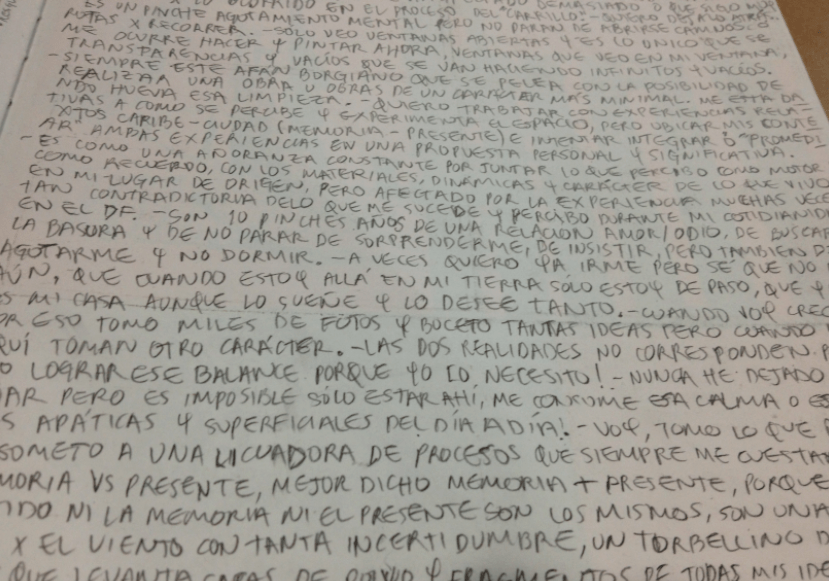 OCURRIDO EN EL PROCESO DEL "CARRILLO".- QUIERO DEJALO ATRÁS
ES UN PINCHE AGOTAMIENTO MENTAL PERO NO PARAN DE ABRIRSE CAMINOS.
RUTAS X RECORRER.- SOLO VEO VENTANAS ABIERTAS Y ES LO ÚNICO QUE SE
ME OCURRE HACER Y PINTAR AHORA, VENTANAS QUE VEO EN MI VENTANA,
TRANSPARENCIAS Y VACÍOS QUE SE VAN HACIENDO INFINITOS Y VACÍOS.
- SIEMPRE ESTE AFÁN BORGIANO QUE SE PELEA CON LA POSIBILIDAD DE
REALIZAR UNA OBRA U OBRAS DE UN CARÁCTER MÁS MINIMAL. ME ESTÁ DA
NDO HUEVA ESA LIMPIEZA.- QUIERO TRABAJAR CON EXPERIENCIAS RELA
TIVAS A COMO SE PERCIBE Y EXPERIMENTA EL ESPACIO, PERO UBICAR MIS CONTE
XTOS CARIBE-CIUDAD (MEMORIA-PRESENTE) E INTENTAR INTEGRAR O "PROMEDI
AR" AMBAS EXPERIENCIAS EN UNA PROPUESTA PERSONAL Y SIGNIFICATIVA.
- ES COMO UNA AÑORANZA CONSTANTE POR JUNTAR LO QUE PERCIBO COMO MOTOR
COMO RECUERDO, CON LOS MATERIALES, DINÁMICAS Y CARÁCTER DE LO QUE VIVO
EN MI LUGAR DE ORIGEN, PERO AFECTADO POR LA EXPERIENCIA MUCHAS VECE
TAN CONTRADICTORIA DE LO QUE ME SUCEDE Y PERCIBO DURANTE MI COTIDIANID
EN EL DF.- SON 10 PINCHES AÑOS DE UNA RELACIÓN AMOR/ODIO, DE BUSCAR
LA BASURA Y DE NO PARAR DE SORPRENDERME, DE INSISTIR, PERO TAMBIEN D
AGOTARME Y NO DORMIR.- A VECES QUIERO YA IRME PERO SÉ QUE NO
AÚN, QUE CUANDO ESTOY ALLÁ EN MI TIERRA SÓLO ESTOY DE PASO, QUE Y
ES MI CASA AUNQUE LO SUEÑE Y LO DESEE TANTO.- CUANDO VOY CREC
OR ESO TOMO MILES DE FOTOS Y BOCETO TANTAS IDEAS PERO CUANDO
QUÍ TOMAN OTRO CARÁCTER.- LAS DOS REALIDADES NO CORRESPONDEN. P
O LOGRAR ESE BALANCE PORQUE YO LO NECESITO!- NUNCA HE DEJADO
AR PERO ES IMPOSIBLE SÓLO ESTAR AHÍ, ME CONSUME ESA CALMA O ES
S APÁTICAS Y SUPERFICIALES DEL DÍA A DÍA!- VOY, TOMO LO QUE
SOMETO A UNA LICUADORA DE PROCESOS QUE SIEMPRE ME CUESTA
MORIA VS PRESENTE, MEJOR DICHO MEMORIA + PRESENTE, PORQUE
IDO NI LA MEMORIA NI EL PRESENTE SON LOS MISMOS, SON UNA
X EL VIENTO CON TANTA INCERTIDUMBRE, UN TORBELLINO D
QUE LEVANTA CAPAS DE POLVO Y FRAGMENTOS DE TODAS MIS IDE